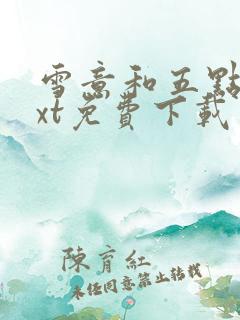 雪意和五點
xt免費下載
陳育紅
未经同意禁止转载